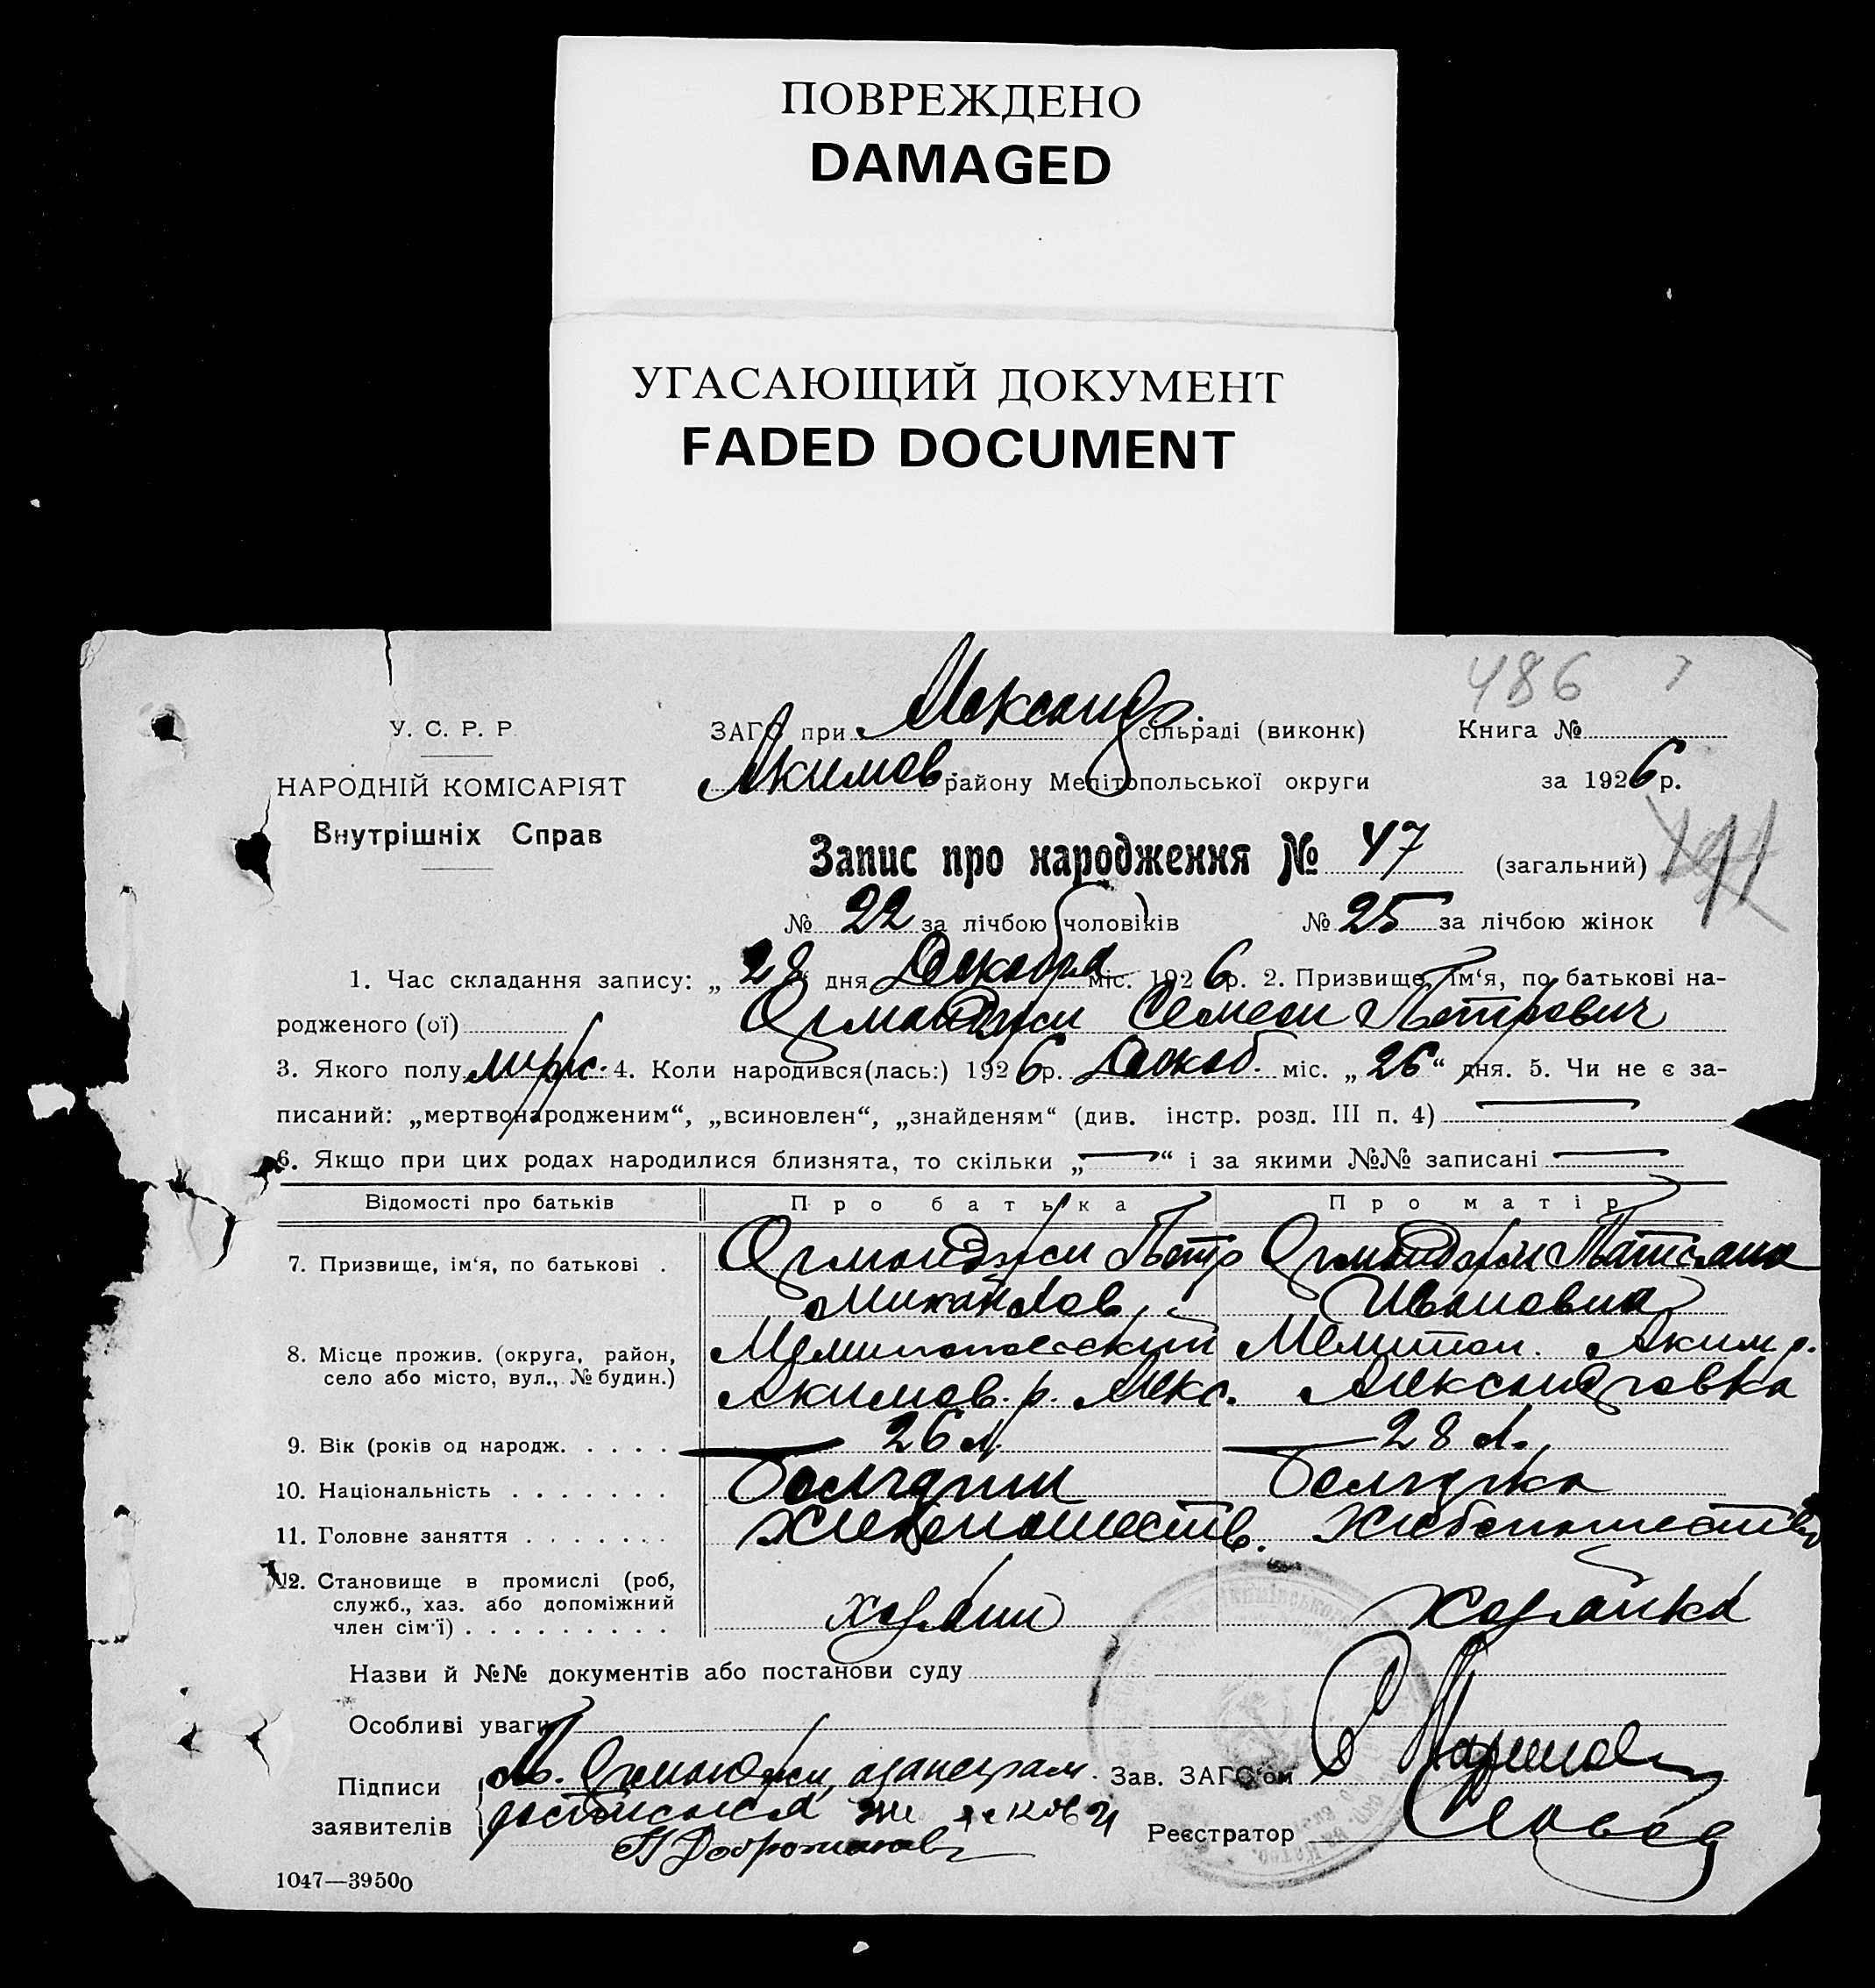 ПОВРЕЖДЕНО
DAMAGED
УГАСАЮЩИЙ ДОКУМЕНТ
FADED DOCUMENT
486
У. С. Р. Р.
ЗАГС при Александр. сільраді (виконк) Книга №
НАРОДНІЙ КОМІСАРІЯТ
Акимов. району Мелітопольської округи за 1926 р.
Внутрішніх Справ
Запис про народження № 47 (загальний)
№ 22 за лічбою чоловіків № 25 за лічбою жінок
1. Час складання запису: „28“ дня Декабра міс. 1926 р. 2. Призвище, ім‘я, по батькові на-
родженого (ої) Орманджи Семен Петрович
3. Якого полу муж. 4. Коли народився(лась:) 1926 р. Декаб. міс. „26“ дня. 5. Чи не є за-
писаний: „мертвонародженим“, „всиновлен“, „знайденям“ (див. інстр. розд. III п. 4) —
6. Якщо при цих родах народилися близнята, то скільки „—“ і за якими №№ записані —
Відомості про батьків Про батька Про матір
7. Призвище, ім‘я, по батькові . Орманджи Петр Орманджи Татиана
Михайлов. Ивановна
8. Місце прожив. (округа, район, село або місто, вул., № будин.) Мелитопольский Мелитоп. Аким р.
Акимов. р. Алекс. Александровка
9. Вік (років од народж. . . . . 26 л. 28 л.
10. Національність . . . . . . . Болгарин Болгарка
11. Головне заняття . . . . . . . Хлебопашеств. Хлебопашество
12. Становище в промислі (роб,
служб., хаз. або допоміжний
член сім‘ї) . . . . . . . . . хозяин хозяйка
Назви й №№ документів або постанови суду
Особливі уваги
Підписи заявителів Орманджи, Зав. ЗАГС‘ом
Реєстратор
1047—39500